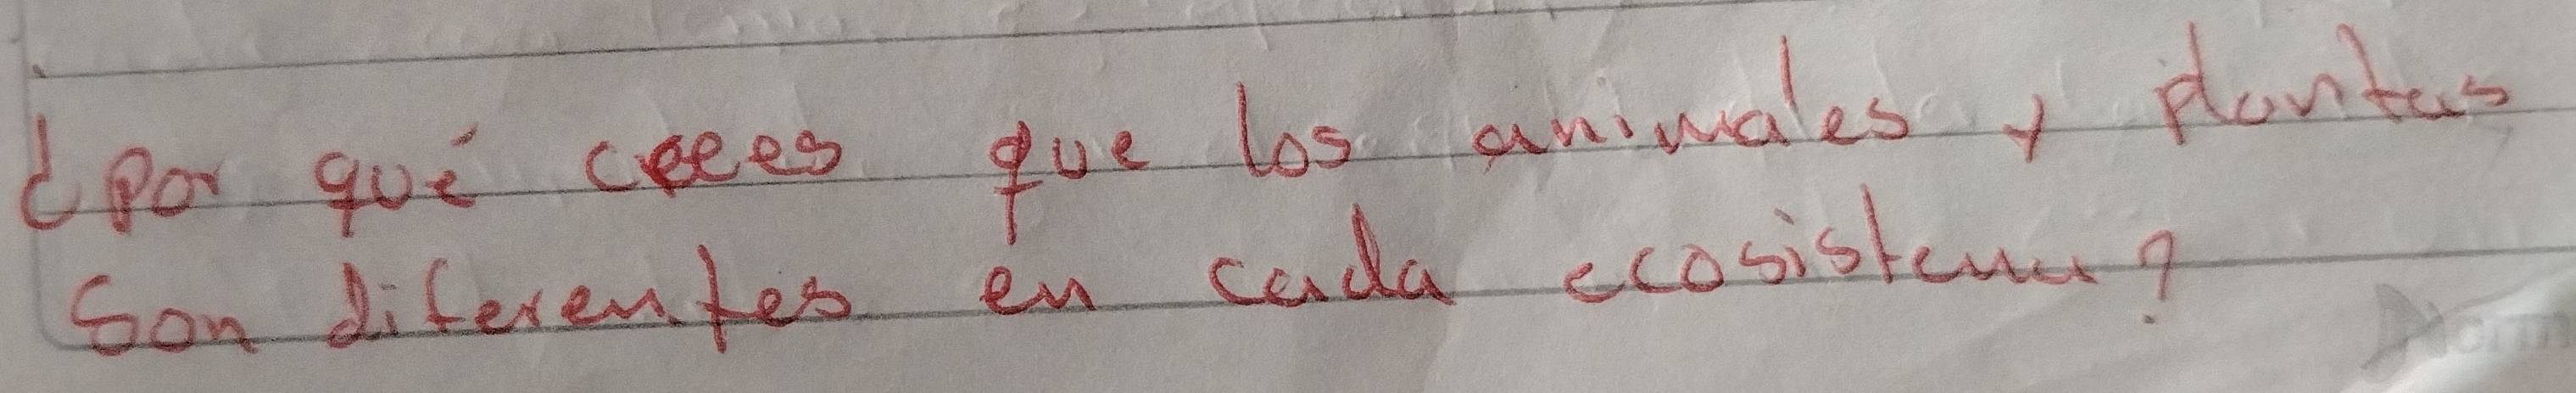 ¿Por qué crees que los animales y plantas
son diferentes en cada ecosistema?
Norm